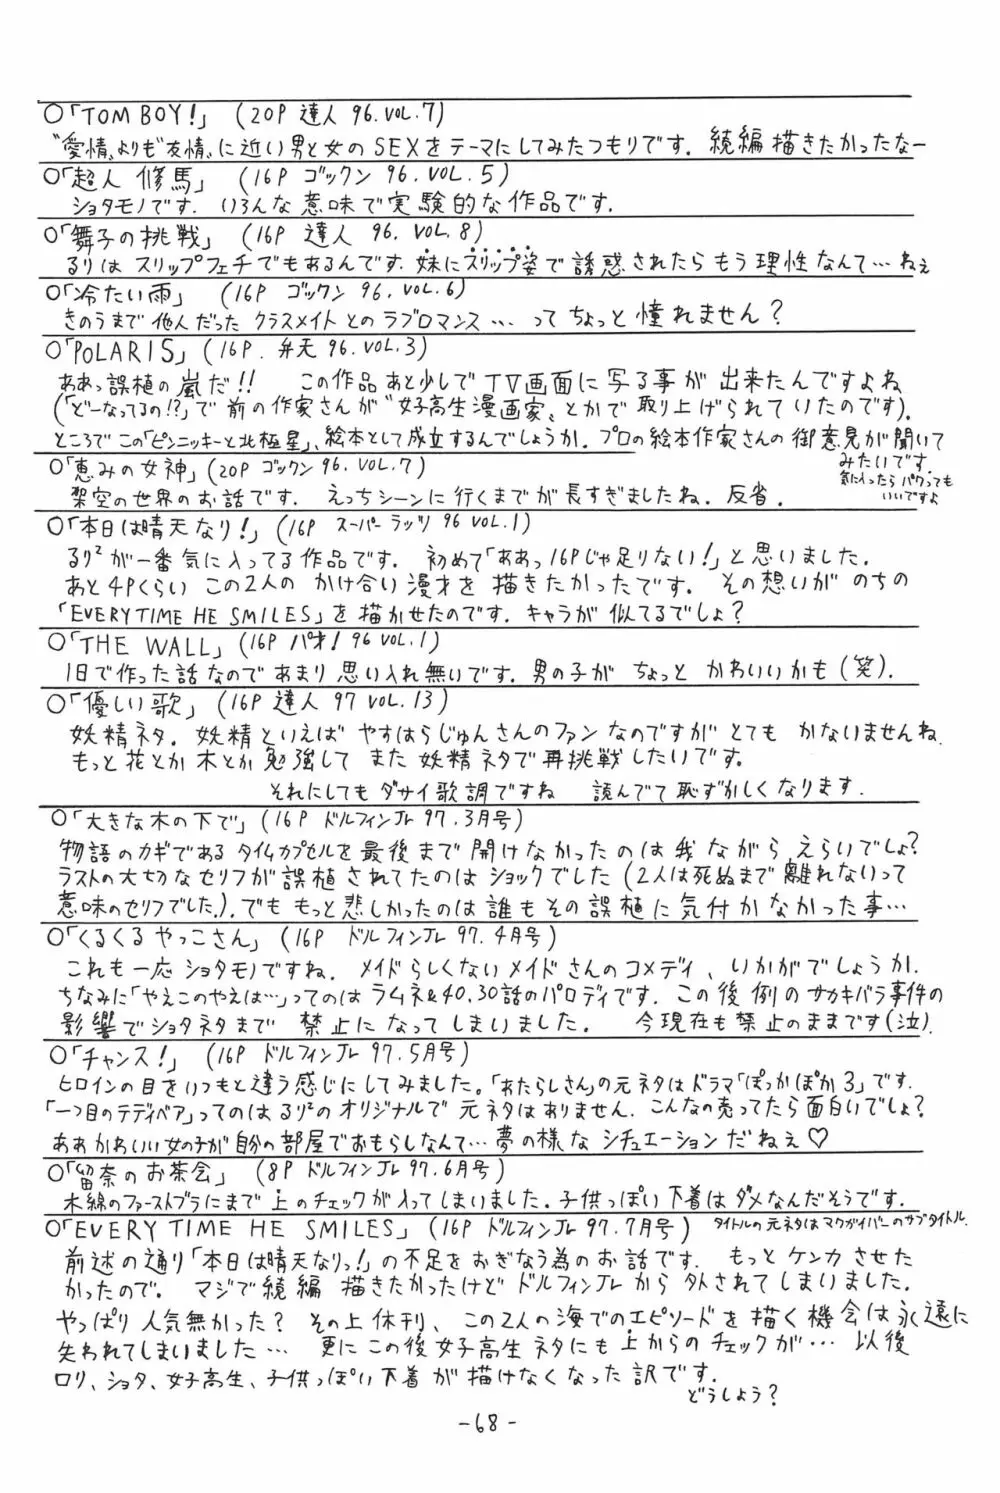 ○「TOM BOY!」(20P 達人 96.VOL.7)
"愛情"よりも"友情"に近い男と女のSEXをテーマにしてみたつもりです. 続編描きたかったなー
○「超人 修馬」(16P ゴックン 96.VOL.5)
ショタモノです. いろんな意味で実験的な作品です.
○「舞子の挑戦」(16P 達人 96.VOL.8)
るりはスリップフェチでもあるんです. 妹にスリップ姿で誘惑されたらもう理性なんて…ねぇ
○「冷たい雨」(16P ゴックン 96.VOL.6)
きのうまで他人だったクラスメイトとのラブロマンス…ってちょっと憧れません?
○「POLARIS」(16P. 弁天 96.VOL.3)
ああっ誤植の嵐だ!! この作品あと少しでTV画面に写る事が出来たんですよね
(「どーなってるの!?」で前の作家さんが"女子高生漫画家"とかで取り上げられていたのです).
ところでこの「ピンニッキーと北極星」、絵本として成立するんでしょうか. プロの絵本作家さんの御意見が聞いて
みたいです.
気に入ったらパクっても
いいですよ
○「恵みの女神」(20P ゴックン 96.VOL.7)
架空の世界のお話です. えっちシーンに行くまでが長すぎましたね. 反省.
○「本日は晴天なり!」(16P スーパーラッツ 96 VOL.1)
るり²が一番気に入ってる作品です. 初めて「ああっ16Pじゃ足りない!」と思いました.
あと4Pくらいこの2人のかけ合い漫才を描きたかったです. その想いがのちの
「EVERY TIME HE SMILES」を描かせたのです. キャラが似てるでしょ?
○「THE WALL」(16P パオ! 96 VOL.1)
1日で作った話なのであまり思い入れ無いです. 男の子がちょっとかわいいかも(笑).
○「優しい歌」(16P 達人 97 VOL.13)
妖精ネタ. 妖精といえばやすはらじゅんさんのファンなのですがとてもかないませんね.
もっと花とか木とか勉強してまた妖精ネタで再挑戦したいです.
それにしてもダサイ歌詞ですね 読んでて恥ずかしくなります.
○「大きな木の下で」(16P ドルフィンJr 97.3月号)
物語のカギであるタイムカプセルを最後まで開けなかったのは我ながらえらいでしょ?
ラストの大切なセリフが誤植されてたのはショックでした(2人は死ぬまで離れないって
意味のセリフでした.). でももっと悲しかったのは誰もその誤植に気付かなかった事…
○「くるくるやっこさん」(16P ドルフィンJr 97.4月号)
これも一応ショタモノですね. メイドらしくないメイドさんのコメディ、いかがでしょうか.
ちなみに「やえこのやえは…」ってのはラムネ&40.30話のパロディです. この後例のサカキバラ事件の
影響でショタネタまで禁止になってしまいました. 今現在も禁止のままです(泣).
○「チャンス!」(16P ドルフィンJr 97.5月号)
ヒロインの目をいつもと違う感じにしてみました。「あたらしさん」の元ネタはドラマ「ぽっかぽか3」です.
「一つ目のテディベア」ってのはるり²のオリジナルで元ネタはありません. こんなの売ってたら面白いでしょ?
ああかわいい女の子が自分の部屋でおもらしなんて…夢の様なシチュエーションだねぇ♡
○「留奈のお茶会」(8P ドルフィンJr 97.6月号)
木綿のファーストブラにまで上のチェックが入ってしまいました. 子供っぽい下着はダメなんだそうです.
○「EVERY TIME HE SMILES」(16P ドルフィンJr 97.7月号) タイトルの元ネタはマクガイバーのサブタイトル.
前述の通り「本日は晴天なりっ!」の不足をおぎなう為のお話です. もっとケンカさせた
かったので。 マジで続編描きたかったけどドルフィンJrから外されてしまいました.
やっぱり人気無かった? その上休刊、この2人の海でのエピソードを描く機会は永遠に
失われてしまいました… 更にこの後女子高生ネタにも上からのチェックが… 以後
ロリ、ショタ、女子高生、子供っぽい下着が描けなくなった訳です.
どうしよう?
-68-